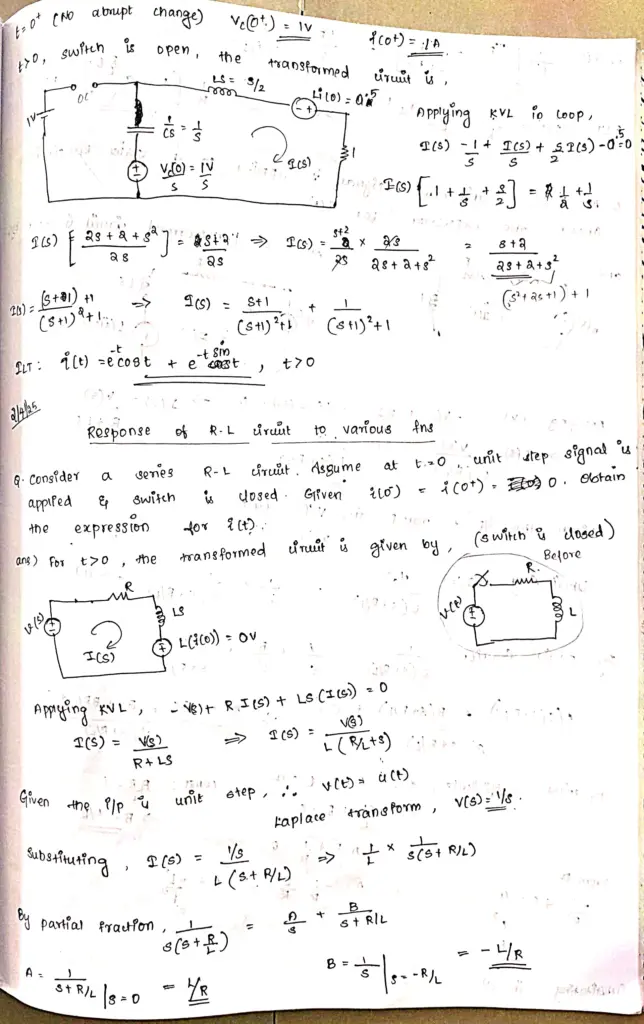 t=0⁺ (NO abrupt change) Vc(0⁺) = 1V i(0⁺) = 1A
t>0, switch is open, the transformed circuit is,
LS = S/2
Li(0) = 0.5
OC
1V
1/CS = 1/S
Vc(0)/S = 1V/S
I(S)
1
Applying KVL in loop,
I(S) - 1/S + I(S)/S + S I(S)/2 - 0.5 = 0
I(S) [1 + 1/S + S/2] = 1/2 + 1/S
I(S) [(2S + 2 + S²)/2S] = (S+2)/2S ⇒ I(S) = (S+2)/2S × 2S/(2S+2+S²) = (S+2)/(2S+2+S²)
(S²+2S+1)+1
I(S) = ((S+1)+1)/((S+1)²+1) ⇒ I(S) = (S+1)/((S+1)²+1) + 1/((S+1)²+1)
ILT: i(t) = e^-t cost + e^-t sin t, t>0
2/4/25
Response of R-L circuit to various fns
Q. Consider a series R-L circuit. Assume at t=0, unit step signal is
applied & switch is closed. Given i(0⁻) = i(0⁺) = 0. Obtain
the expression for i(t).
ans) For t>0, the transformed circuit is given by, (switch is closed)
Before
R
LS
V(S)
I(S)
L(i(0)) = 0V
R
V(t)
L
Applying KVL, - V(S) + R.I(S) + LS(I(S)) = 0
I(S) = V(S)/(R+LS) ⇒ I(S) = V(S)/(L(R/L+S))
Given the i/p is unit step, ∴ v(t) = u(t)
Laplace transform, V(S) = 1/S.
Substituting, I(S) = (1/S)/(L(S+R/L)) ⇒ 1/L × 1/(S(S+R/L))
By partial fraction, 1/(S(S+R/L)) = A/S + B/(S+R/L)
A = 1/(S+R/L) |S=0 = L/R B = 1/S |S=-R/L = -L/R